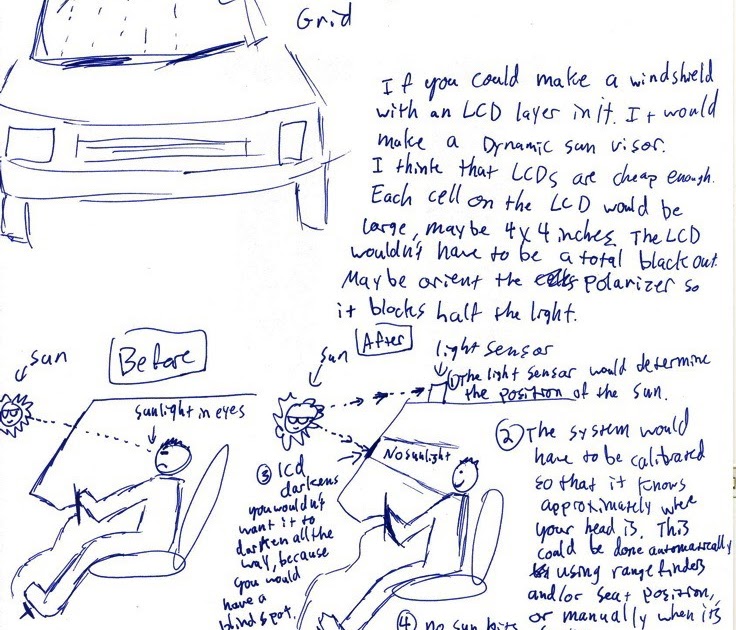 Grid
If you could make a windshield
with an LCD layer in it. It would
make a Dynamic sun visor.
I think that LCDs are cheap enough.
Each cell on the LCD would be
large, maybe 4x4 inches. The LCD
wouldn't have to be a total blackout.
Maybe orient the polarizer so
it blocks half the light.
Before
sun
sunlight in eyes
After
sun
light sensor
① The light sensor would determine
the position of the sun.
No sunlight
② The system would
have to be calibrated
so that it knows
approximately where
your head is. This
could be done automatically
using range finders
and/or seat position,
or manually when it's
③ lcd
darkens
you wouldn't
want it to
darken all the
way, because
you would
have a
blind spot.
④ no sun hits